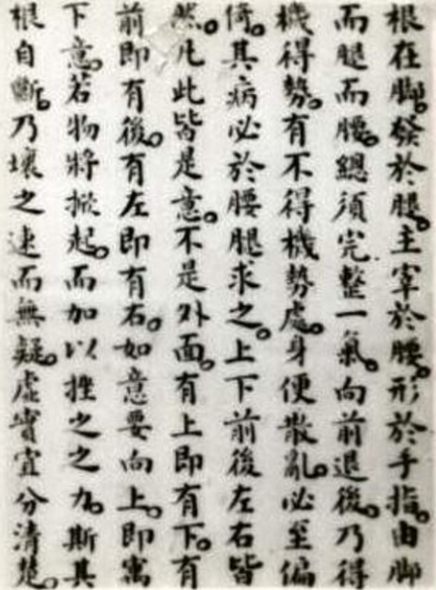 根在脚。發於腿。主宰於腰。形於手指。由脚
而腿而腰。總須完整一氣。向前退後。乃得
機得勢。有不得機勢處。身便散亂。必至偏
倚。其病必於腰腿求之。上下前後左右皆
然。凡此皆是意。不是外面。有上即有下。有
前即有後。有左即有右。如意要向上。即寓
下意。若物將掀起。而加以挫之之力。斯其
根自斷。乃壞之速而無疑。虛實宜分清楚。